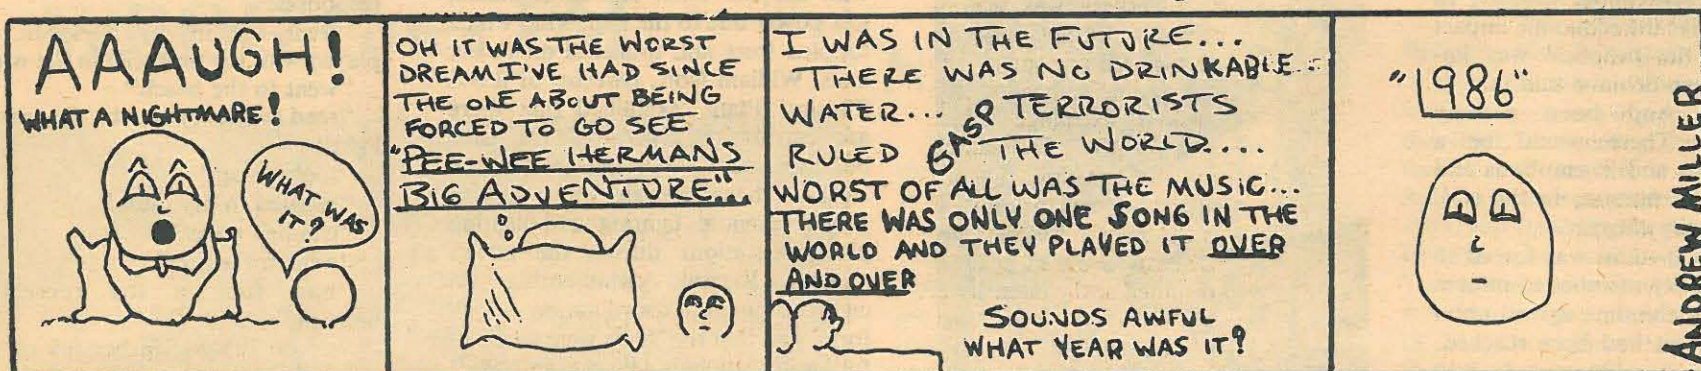 AAAUGH!
WHAT A NIGHTMARE!
WHAT WAS
IT?
OH IT WAS THE WORST
DREAM I'VE HAD SINCE
THE ONE ABOUT BEING
FORCED TO GO SEE
"PEE-WEE HERMANS
BIG ADVENTURE"...
I WAS IN THE FUTURE...
THERE WAS NO DRINKABLE..
WATER... GASP TERRORISTS
RULED THE WORLD....
WORST OF ALL WAS THE MUSIC...
THERE WAS ONLY ONE SONG IN THE
WORLD AND THEY PLAYED IT OVER
AND OVER
SOUNDS AWFUL
WHAT YEAR WAS IT?
"1986"
ANDREW MILLER